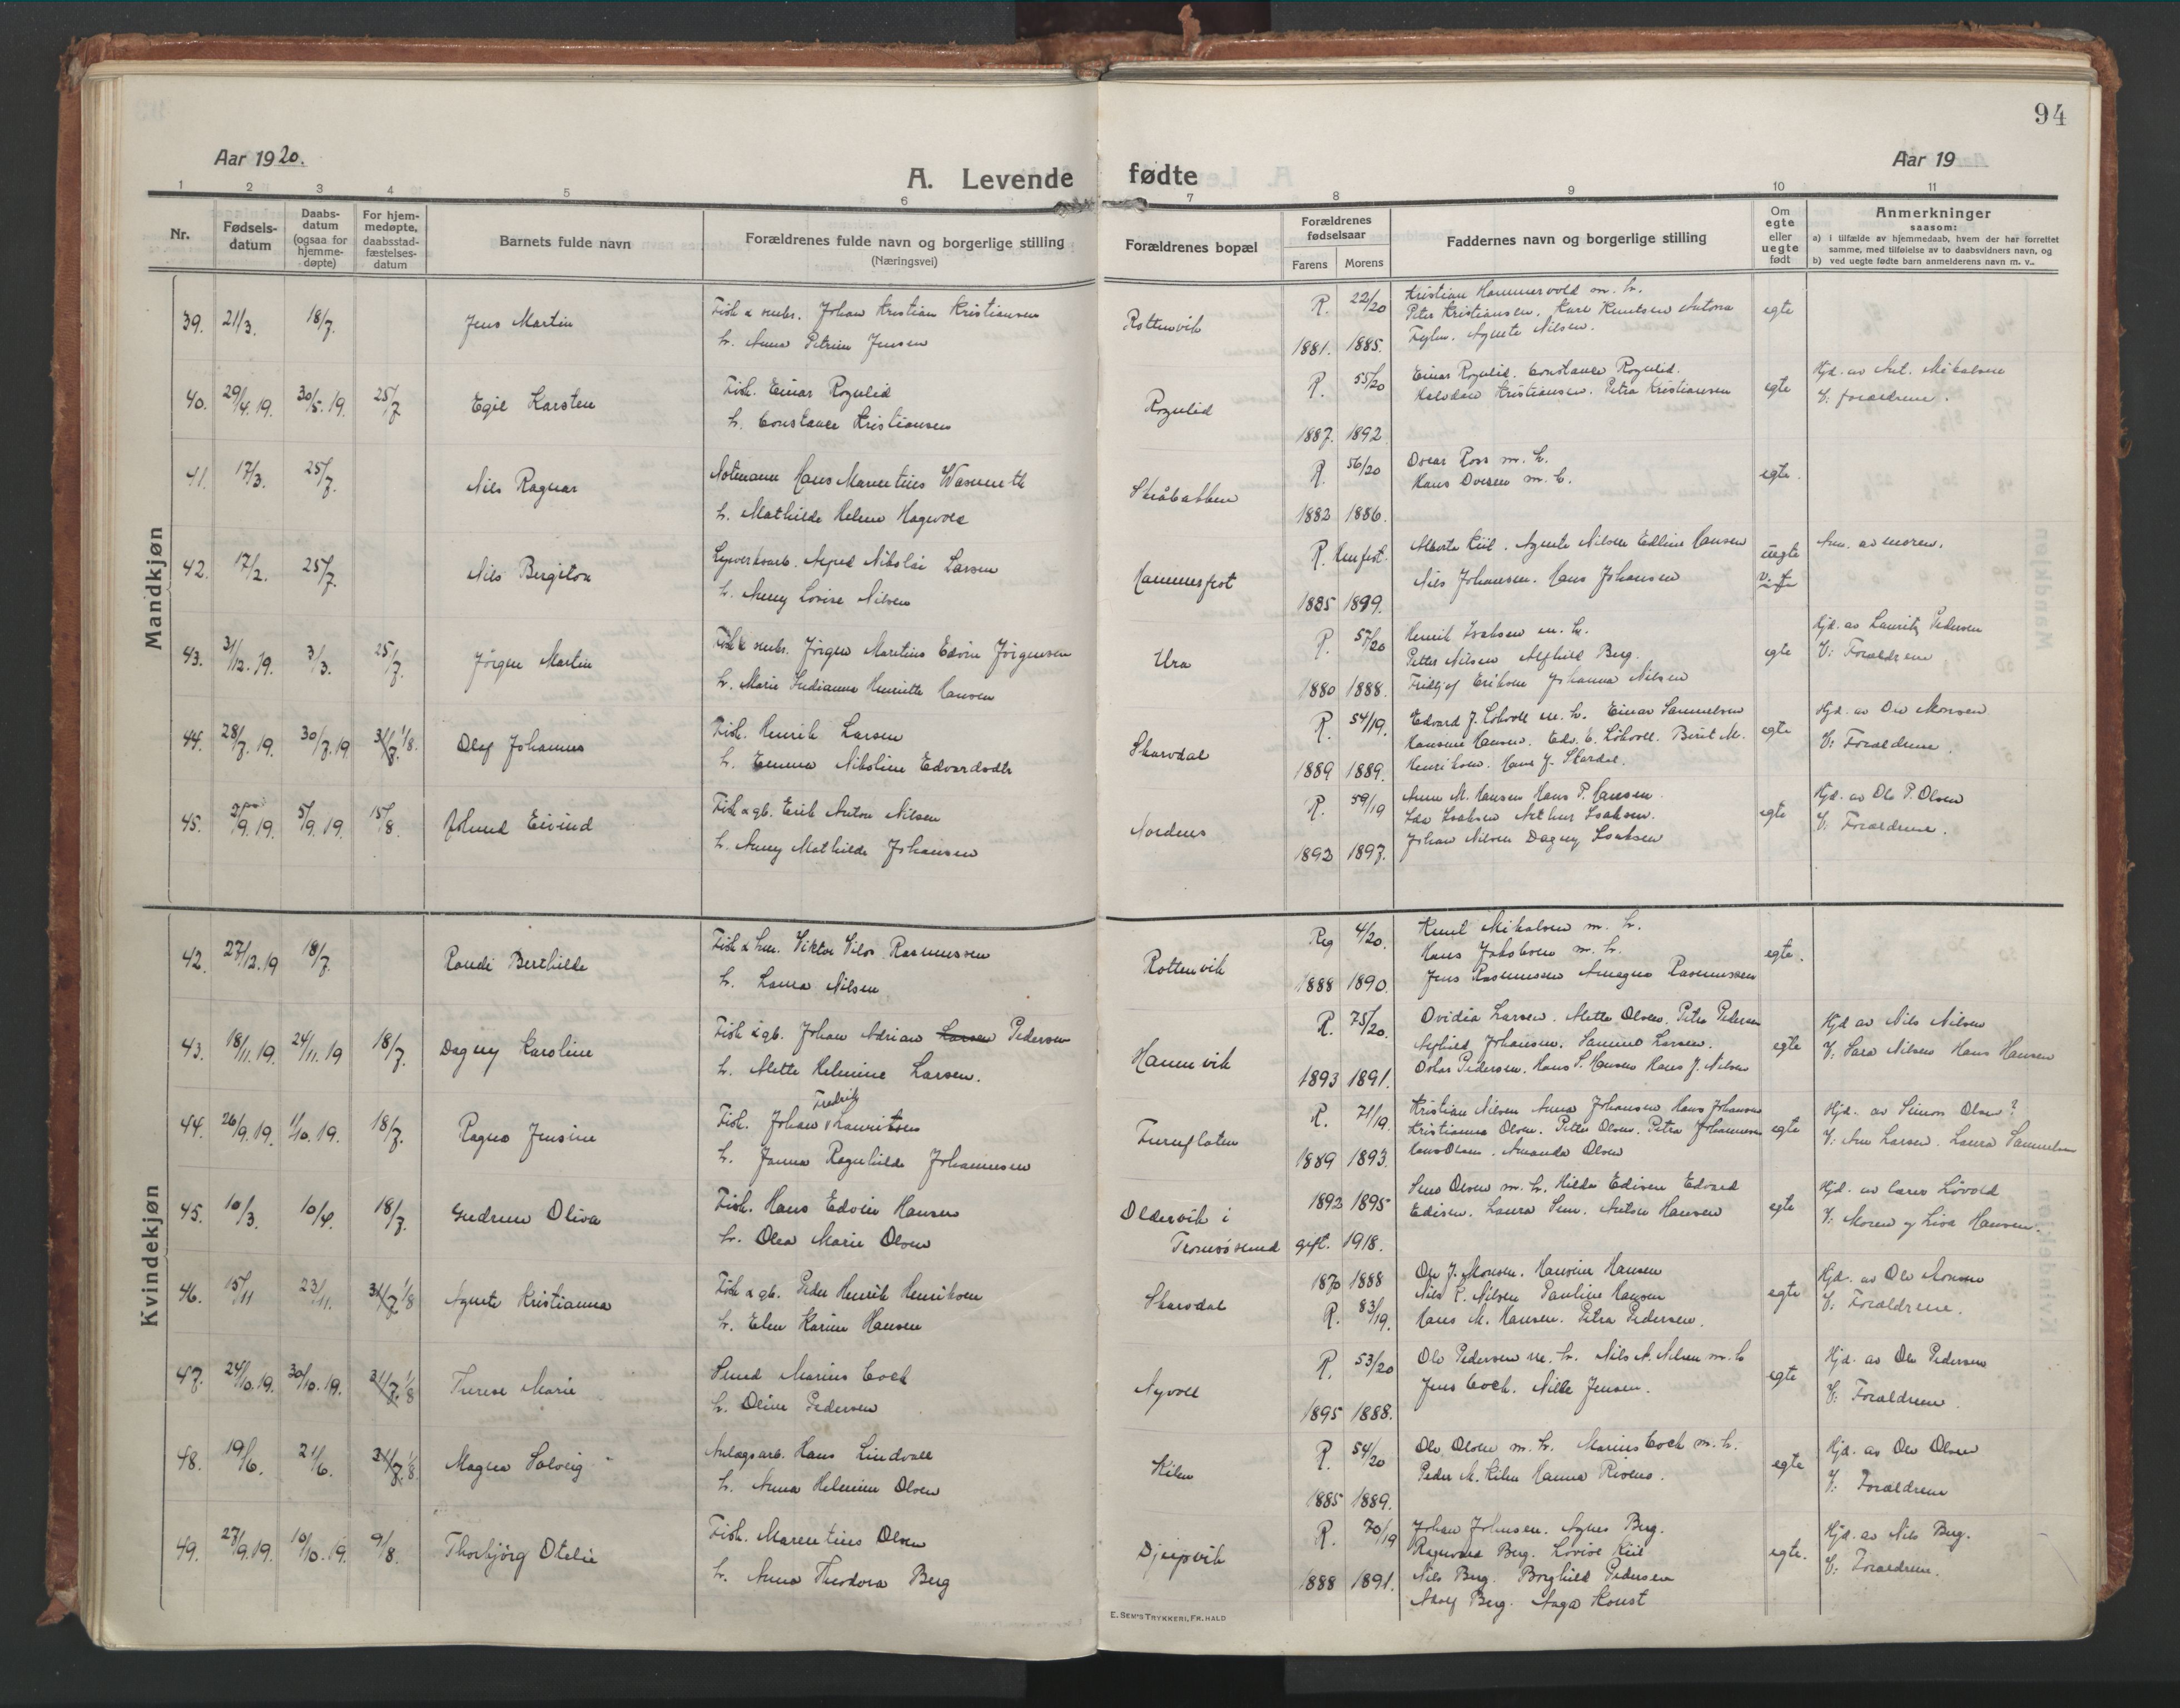 94
Aar 1920.
Aar 19
A. Levende fødte
1 2 3 4 5 6 7 8 9 10 11
Nr.
Fødsels-datum
Daabs-datum (ogsaa for hjemme-døpte)
For hjem-medøpte, daabsstad-fæstelses-datum
Barnets fulde navn
Forældrenes fulde navn og borgerlige stilling (Næringsvei)
Forældrenes bopæl
Forældrenes fødselsaar
Farens Morens
Faddernes navn og borgerlige stilling
Om egte eller uegte født
Anmerkninger
saasom:
a) i tilfælde av hjemmedaab, hvem der har forrettet samme, med tilføielse av to daabsvidners navn, og
b) ved uegte fødte barn anmelderens navn m. v..
Mandkjøn
39. 21/3. 18/7. Jens Martin Fisk & smbr. Johan Kristian Kristiansen Rottenvik R. 22/20 Kristian Hammervold m. h. egte
h. Anna Petrine Jensen 1881. 1885. Peter Kristiansen. Kare Knutsen Antona
Agnete Nilsen.
40. 29/4.19. 30/5.19. 25/7 Egil Karsten Fisk. Einar Rognlid Rognlid R. 55/20 Einar Rognlid. Constance Rognlid. egte Hjd. av Ant. Mikalsen
h. Constance Kristiansen 1887. 1892 Halvdan Kristiansen. Petra Kristiansen V: forældrene.
41. 17/3. 25/7. Nils Ragnar Notemann Hans Marentius Wasmuth R. 56/20 Oscar Ross m. h. egte.
h. Mathilde Helene Hagvold 1882 1886. Hans m. h.
42. 17/2. 25/7. Nils Bergiton Alfred Nikolai Larsen Hammerfest R. Hmfest. Alberta Kiil. Agnete Nilsen Edline Hansen uegte Anm. av moren.
h. Anny Lovise Nilsen 1885 1899. Nils Johansen. Hans Johansen
43. 31/12.19. 3/3. 25/7. Jörgen Martin Fisk & smbr. Jörgen Martius Edvin Jörgensen Ura R. 57/20 Henrik Isaksen m. h. egte Hjd. av Lauritz Pedersen
h. Marie Indianna Henriette Hansen 1880 1888. Petter Nilsen Alfhild Berg. V: Forældrene
Fridtjof Eriksen Johanna Nilsen
44. 28/7.19. 30/7.19 31/7. 1/8. Olaf Johannes Fisk. Henrik Larsen Skarsdal R. 54/19. Edvard J. Lökvoll m. h. Einar Samuelsen egte Hjd. av Ole Monsen
h. Emma Nikoline Edvardsdtr 1889 1889. Hansine Hansen. Edv. E. Lökvoll. Berit M. V: Forældrene.
Henriksen. Hans J. Skardal.
45. 2/9.19. 5/9.19. 15/8. Eivind Fisk & gb. Erik Anton Nilsen Nordnes R. 59/19 Anne M. Hansen Hans P. Hansen. egte Hjd. av Ole P. Olsen
h. Anny Mathilde Johansen 1892 1897. Ida Isaksen Arthur Isaksen. V: Forældrene.
Johan Nilsen Dagny Isaksen
Kvindekjøn
42. 27/12.19 18/7. Randi Berthilde Fisk & Viktor Rasmussen Rottenvik Reg 4/20. Knut Mikalsen m. h. egte.
h. Laura Nilsen 1888 1890. Hans Jakobsen m. h.
Jens Rasmussen Rasmussen
43. 18/11.19. 24/11.19 18/7. Dagny Karoline Fisk & gb. Johan Adrian Larsen Pedersen Hamnvik R. 75/20. Ovidia Larsen. Mette Olsen. Petra Pedersen egte Hjd av Nils Nilsen
h. Mette Helmine Larsen. 1893 1891. Alfhild Johansen. Larsen. V: Sara Nilsen Hans Hansen
Oskar Pedersen. Hans S. Hansen Hans J. Nilsen
44. 26/9.19. 1/10.19. 18/7. Ragna Jensine Fisk. Johan Fredrik Lauritsen Furuflaten R. 71/19. Kristian Nilsen Anna Johansen Hans Johansen egte Hjd. av Simon Olsen?
h. Janna Ragnhilda Johannesen 1889 1893. Kristianna Olsen. Peter Olsen. Petra Johannesen V: Ane Larsen. Laura Samuelsen
Hans Olsen. Amanda Olsen
45. 10/3. 10/4. 18/7. Gudrun Oliva Fisk. Hans Edvin Hansen Oldervik i Tromsösund 1892 1895 Olsen m. h. Hilda Edisen Edvard egte Hjd. av Lars Lövold
h. Olea Marie Olsen gift. 1918. Edisen. Laura Sem. Anton Hansen V: Moren og Lise Hansen.
46. 15/11 23/11. 31/7 1/8 Agnete Kristianna Fisk & gb. Peder Henrik Henriksen Skarsdal 1870 1888 Ole J. Monsen. Hansine Hansen egte Hjd. av Ole Monsen
h. Elen Karine Hansen R. 83/19. Nils L. Nilsen Pauline Hansen V: Forældrene.
Hans M. Hansen. Petra Pedersen.
47. 24/10.19. 30/10.19. 31/7. 1/8 Therese Marie Smed Marius Coch Nyvoll R. 53/20 Ole Pedersen m. h. Nils A. Nilsen m. h egte Hjd. av Ole Pedersen
h. Oline Pedersen 1895 1888. Jens Coch. Nille Jensen. V: Forældrene
48. 19/6. 21/6. 31/7. 1/8. Magna Solveig Anlægsarb. Hans Lindvall Kilen R. 54/20 Ole Olsen m. h. Marius Coch m. h. egte Hjd. av Ole Olsen
h. Anna Helmine Olsen 1885 1889. Peder M. Kilen Hanna Rivens. V: Forældrene
49. 27/9.19. 10/10.19. 9/8. Thorbjörg Otelie Fisk. Marentius Olsen Djupvik R. 70/19 Johan Johnsen. Agnes Berg. egte. Hjd. av Nils Berg.
h. Anna Theodora Berg 1888 1891. Ragnvald Berg. Lovise Kiil V: Forældrene.
Nils Berg. Borghild Pedersen
Adolf Berg. Aaga Konst
E. SEM'S TRYKKERI, FR. HALD